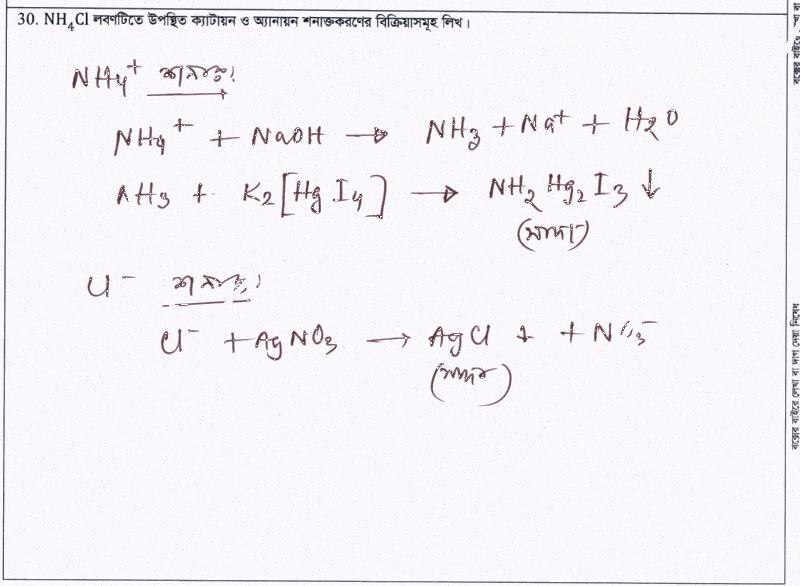 30. NH₄Cl লবণটিতে উপস্থিত ক্যাটায়ন ও অ্যানায়ন শনাক্তকরণের বিক্রিয়াসমূহ লিখ।
NH₄⁺ শনাক্ত:
NH₄⁺ + NaOH → NH₃ + Na⁺ + H₂O
NH₃ + K₂[HgI₄] → NH₂Hg₂I₃ ↓
(সাদা)
Cl⁻ শনাক্ত:
Cl⁻ + AgNO₃ → AgCl ↓ + NO₃⁻
বক্সের বাইরে লেখা বা দাগ দেয়া নিষেধ